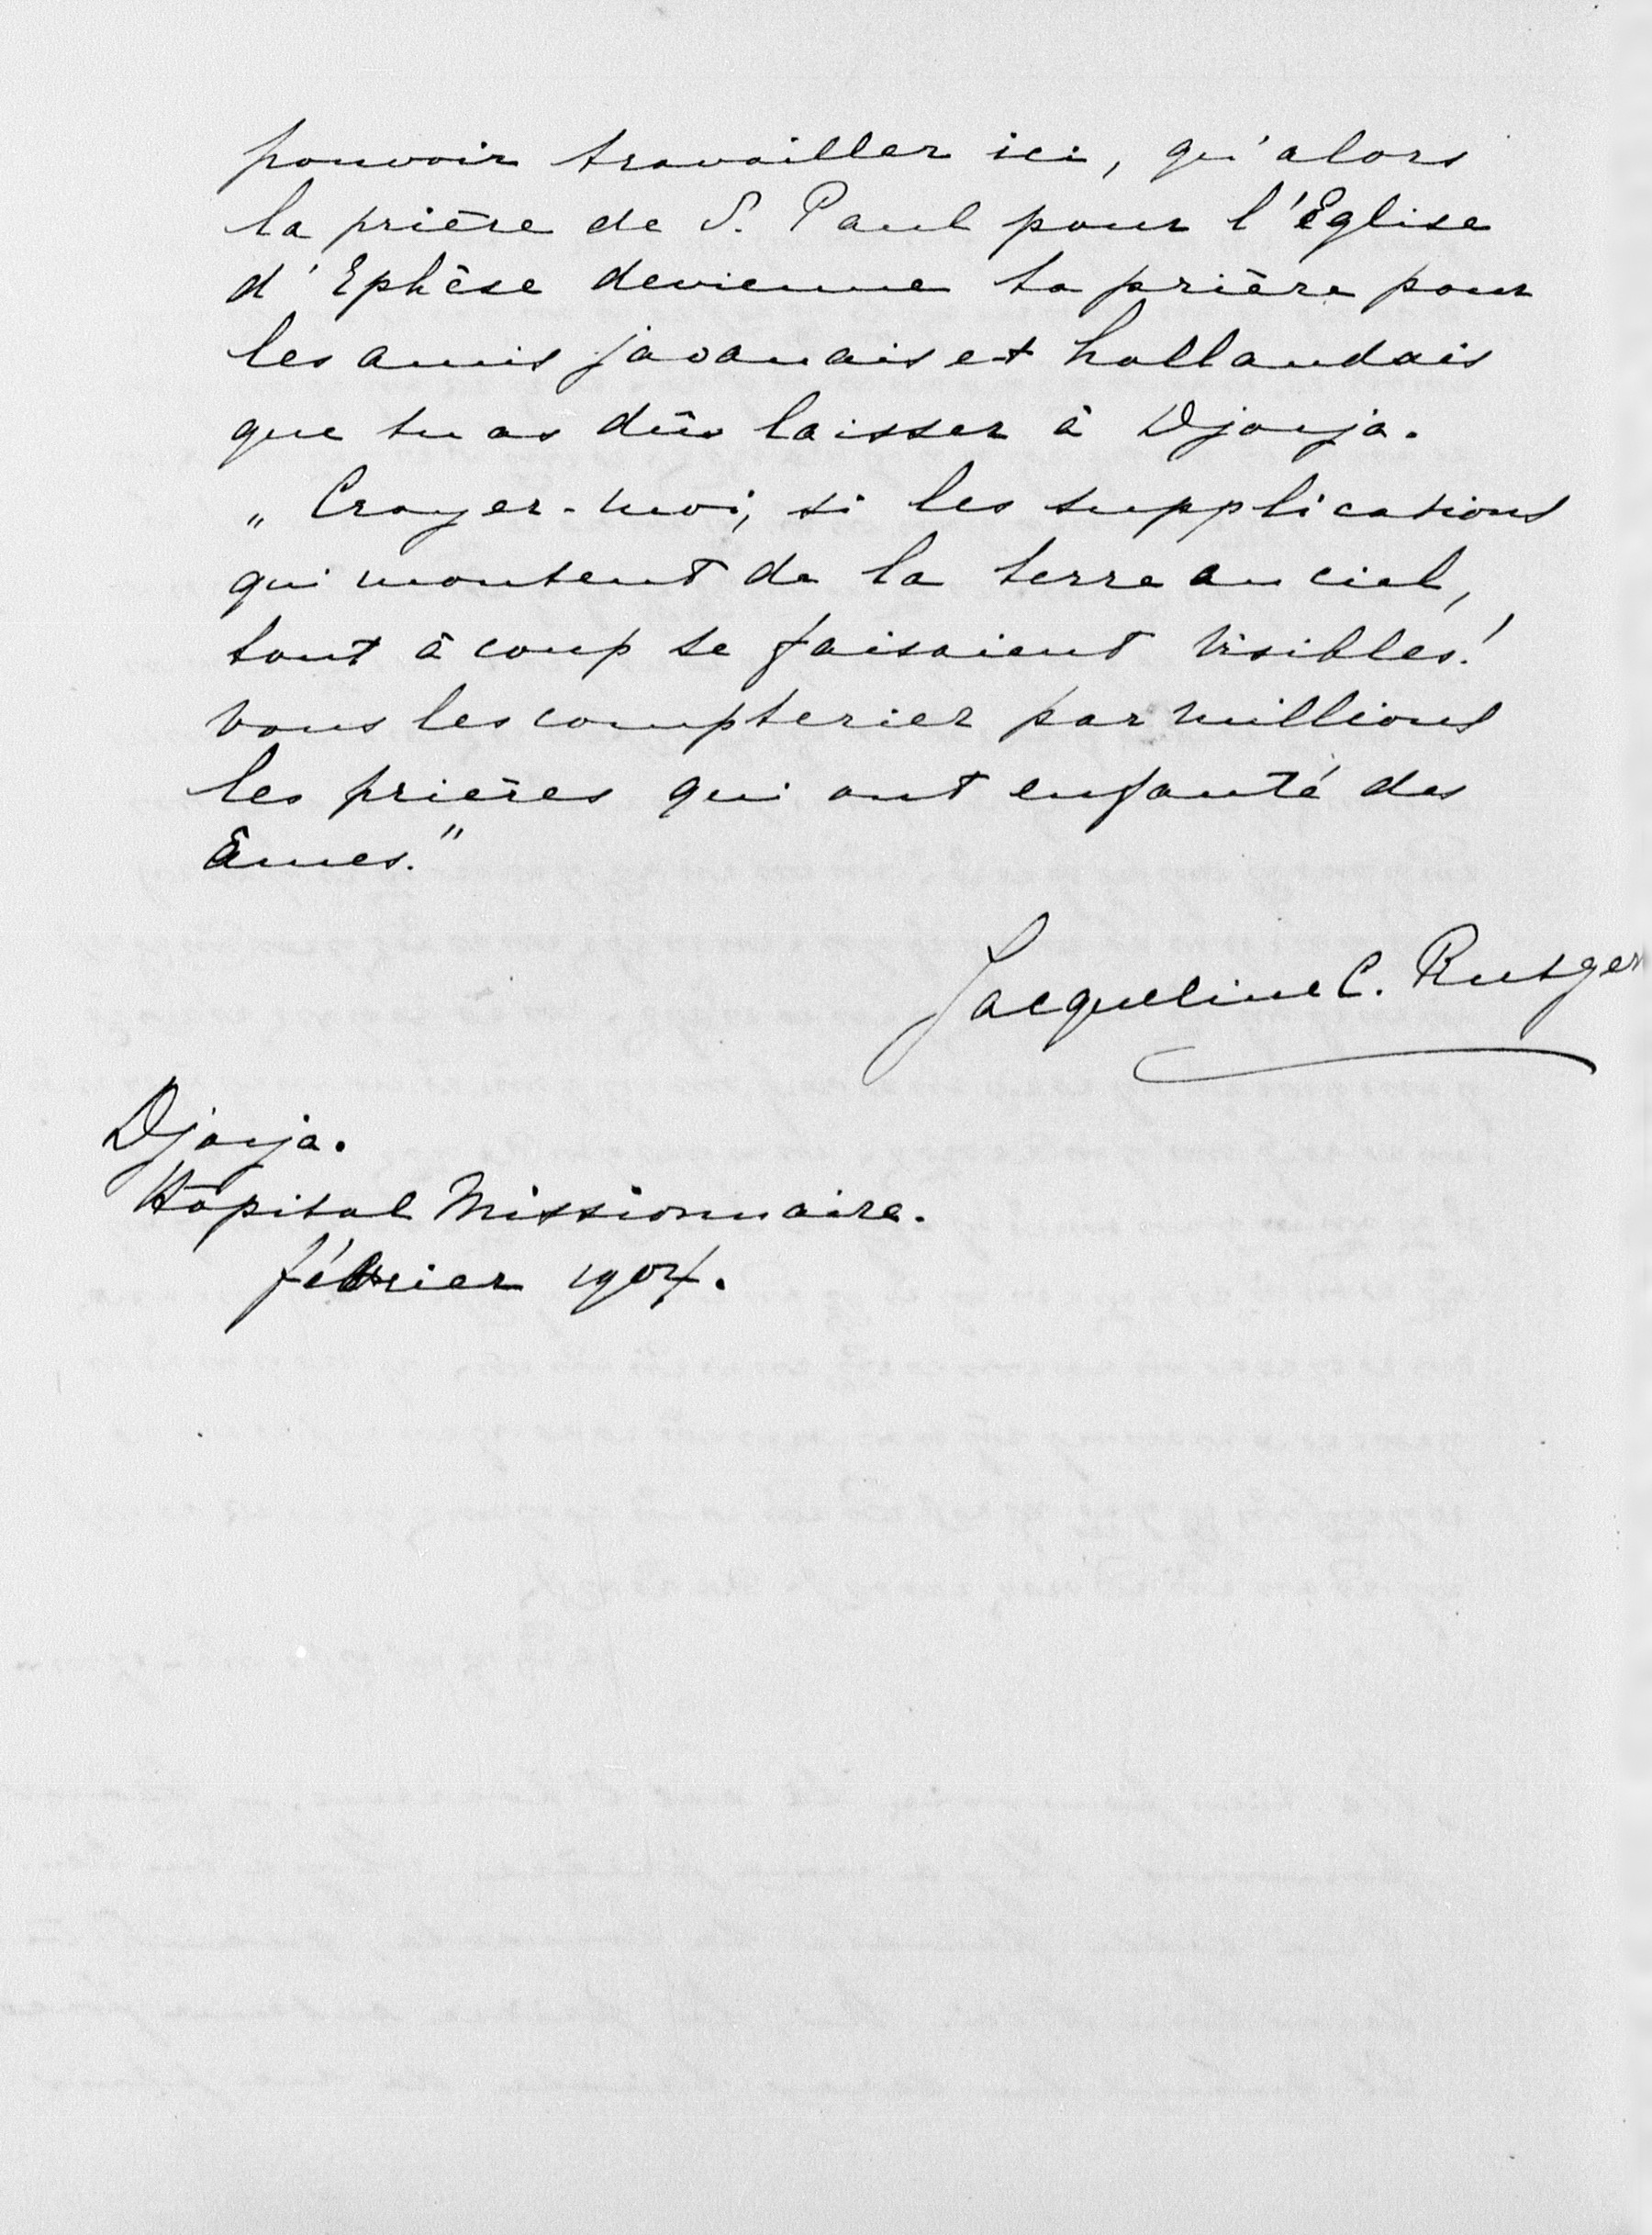 pouvoir travailler ici, qu'alors
la prière de S. Paul pour l'Eglise
d'Ephèse devienne ta prière pour
les amis javanais et hollandais
que tu as dûs laisser à Djocja.
„Croyez-moi, si les supplications
qui montent de la terre au ciel,
tout à coup se faisaient visibles!
vous les compteriez par millions
les prières qui ont enfanté des
âmes."
Jacqueline C. Rutgers
Djocja.
Hôpital Missionnaire.
février 1904.